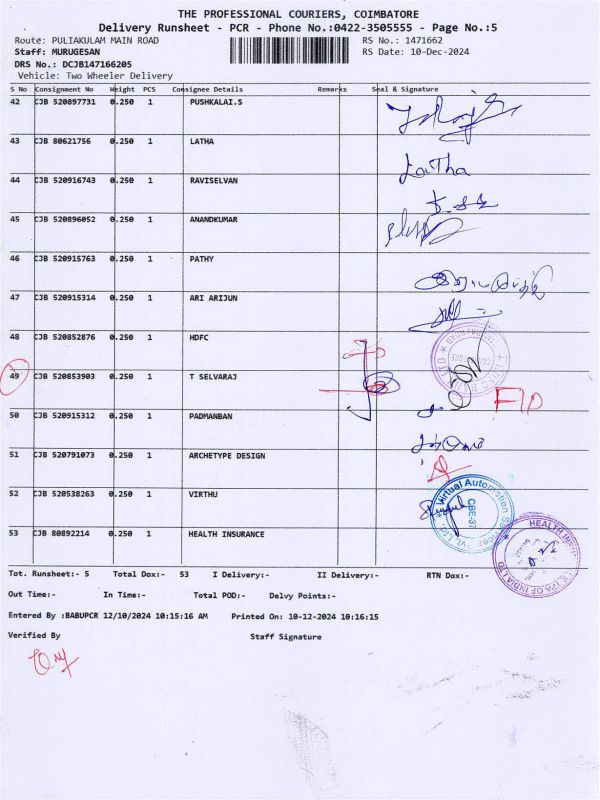 THE PROFESSIONAL COURIERS, COIMBATORE
Delivery Runsheet - PCR - Phone No.:0422-3505555 - Page No.:5
Route: PULIAKULAM MAIN ROAD RS No.: 1471662
Staff: MURUGESAN RS Date: 10-Dec-2024
DRS No.: DCJB147166205
Vehicle: Two Wheeler Delivery
S No Consignment No Weight PCS Consignee Details Remarks Seal & Signature
42 CJB 520897731 0.250 1 PUSHKALAI.S
43 CJB 80621756 0.250 1 LATHA Latha
44 CJB 520916743 0.250 1 RAVISELVAN
45 CJB 520896052 0.250 1 ANANDKUMAR
46 CJB 520915763 0.250 1 PATHY
47 CJB 520915314 0.250 1 ARI ARIJUN
48 CJB 520852876 0.250 1 HDFC
49 CJB 520853903 0.250 1 T SELVARAJ
50 CJB 520915312 0.250 1 PADMANBAN
51 CJB 520791073 0.250 1 ARCHETYPE DESIGN
52 CJB 520538263 0.250 1 VIRTHU Virtual Automation CBE-37
53 CJB 80892214 0.250 1 HEALTH INSURANCE HEALTH TPA OF INDIA LTD
Tot. Runsheet:- 5 Total Dox:- 53 I Delivery:- II Delivery:- RTN Dox:-
Out Time:- In Time:- Total POD:- Delvy Points:-
Entered By :BABUPCR 12/10/2024 10:15:16 AM Printed On: 10-12-2024 10:16:15
Verified By Staff Signature